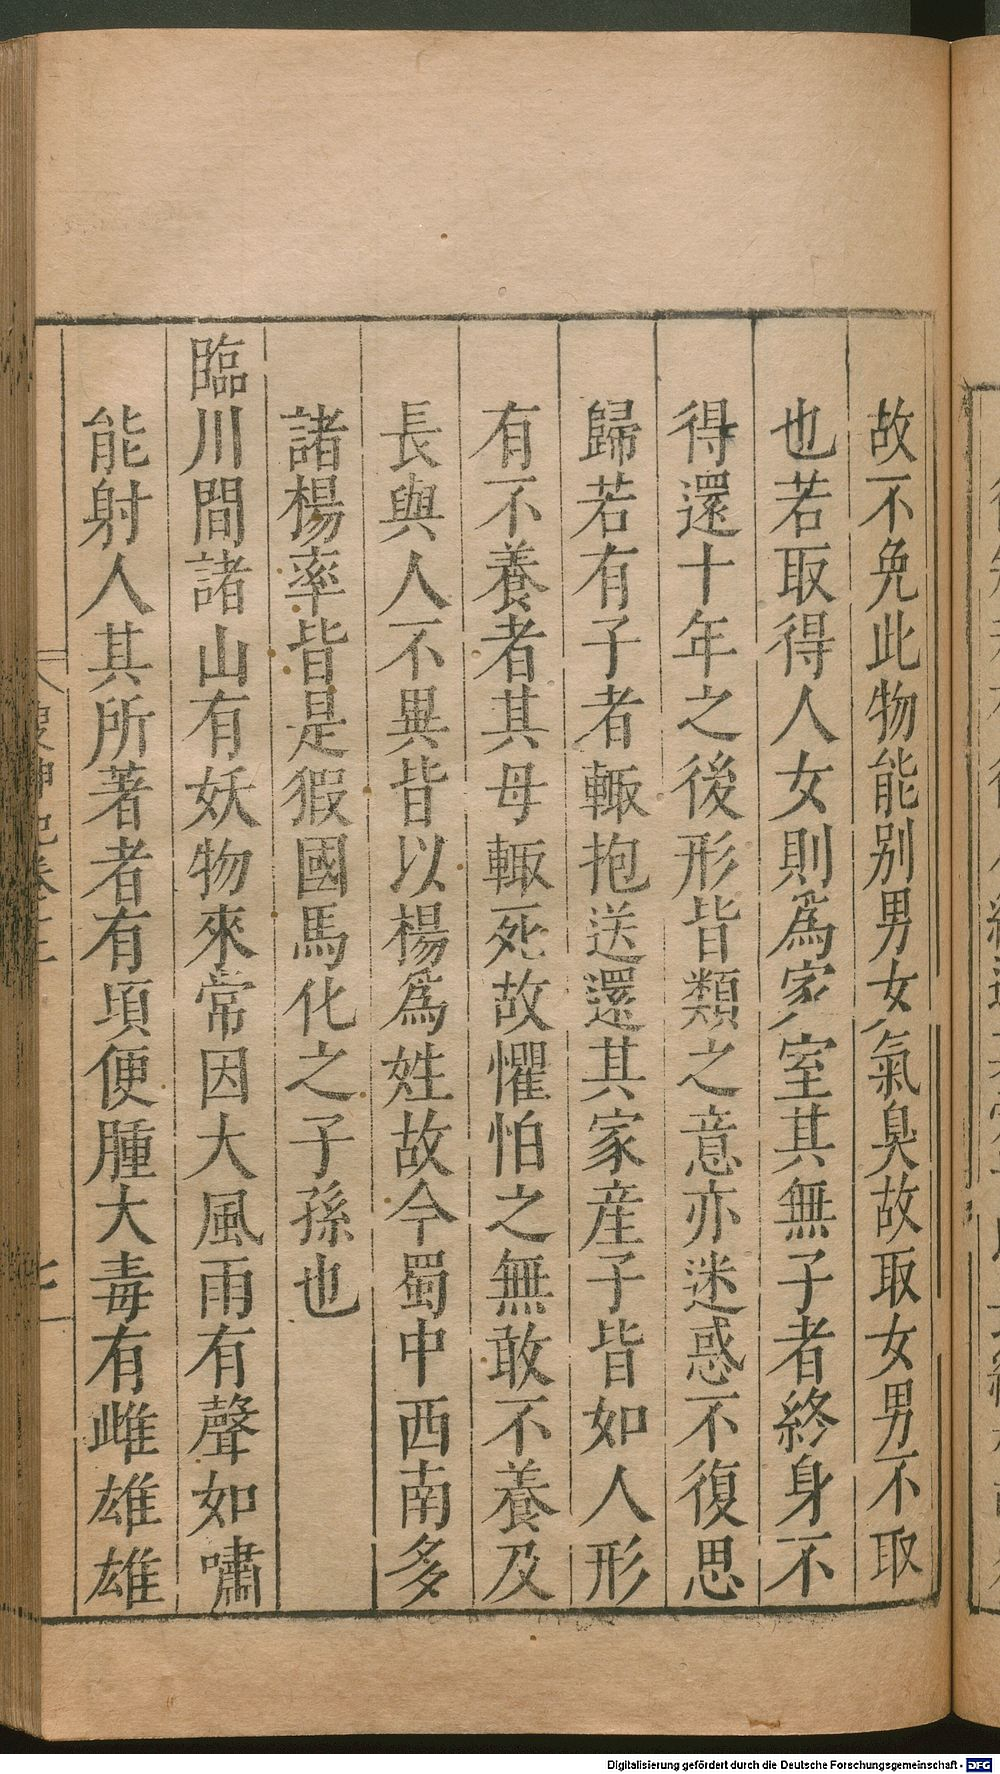 故不免此物能別男女氣臭故取女男不取
也若取得人女則爲家室其無子者終身不
得還十年之後形皆類之意亦迷惑不復思
歸若有子者輙抱送還其家産子皆如人形
有不養者其母輙死故懼怕之無敢不養及
長與人不異皆以楊爲姓故今蜀中西南多
諸楊率皆是猳國馬化之子孫也
臨川間諸山有妖物來常因大風雨有聲如嘯
能射人其所著者有頃便腫大毒有雌雄雄
搜神記卷十二
Digitalisierung gefördert durch die Deutsche Forschungsgemeinschaft - DFG